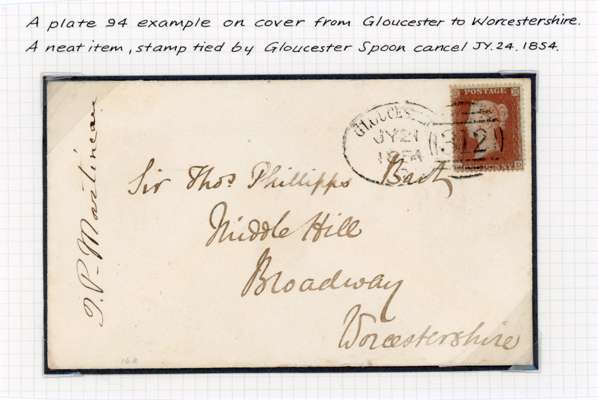 A plate 94 example on cover from Gloucester to Worcestershire.
A neat item, stamp tied by Gloucester Spoon cancel JY.24.1854.
POSTAGE
GLOUCES
JY 21
1854
312
Sir Thos. Phillipps Bart
Middle Hill
Broadway
Worcestershire
J. P. Martineau